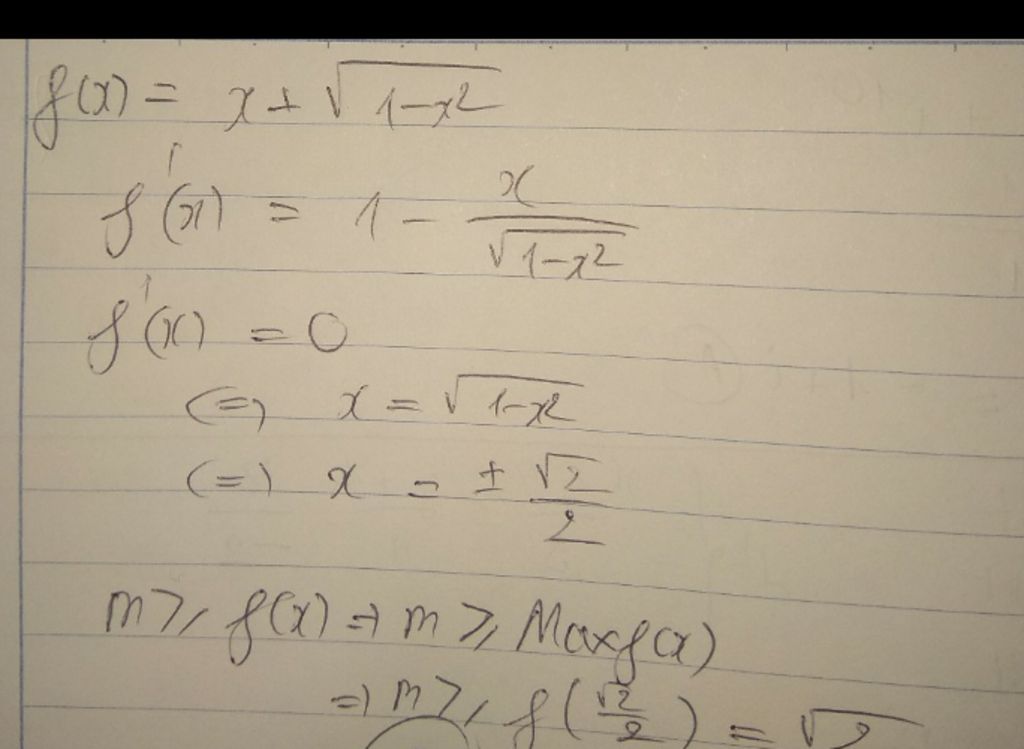 f(x) = x + √(1-x²)
f'(x) = 1 - x/√(1-x²)
f'(x) = 0
(=) x = √(1-x²)
(=) x = ± √2/2
m ≥ f(x) => m ≥ Max f(x)
=> m ≥ f(√2/2) = √2